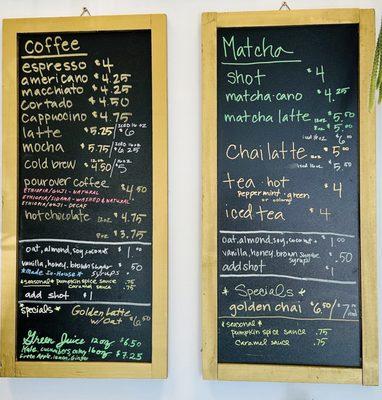 Coffee
espresso $4
americano $4.25
macchiato $4.25
cortado $4.50
cappuccino $4.75
latte $5.25 / iced 16 oz $6
mocha $5.75 / iced 16oz $6.25
cold brew 12oz $4.50 / 16oz $5
pourover coffee $4.50
ETHIOPIA/GUJI - NATURAL
ETHIOPIA/SIDAMA - WASHED & NATURAL
ETHIOPIA/GUJI - DECAF
hot chocolate 12oz $4.75
8oz $3.75
oat, almond, soy, coconut $1.00
vanilla, honey, brown sugar $.50
*Made In-House* syrups
*seasonal* pumpkin spice sauce .75
caramel sauce .75
add shot $1
*Specials* Golden Latte
w/Oat $6.50
Green Juice 12oz $6.50
Kale, cucumber, 16oz $7.25
Green Apple, lemon, Ginger
Matcha
shot $4
matcha-cano $4.25
matcha latte 12oz $5.50
8oz $5.00
iced $6
Chai latte 12oz $5.00
iced $5.50
tea hot $4
peppermint, green
or oolong
iced tea $4
oat, almond, soy, coconut $1.00
vanilla, honey, brown sugar syrups $.50
add shot $1
*Specials*
golden chai $6.50/$7
*seasonal*
pumpkin spice sauce .75
caramel sauce .75